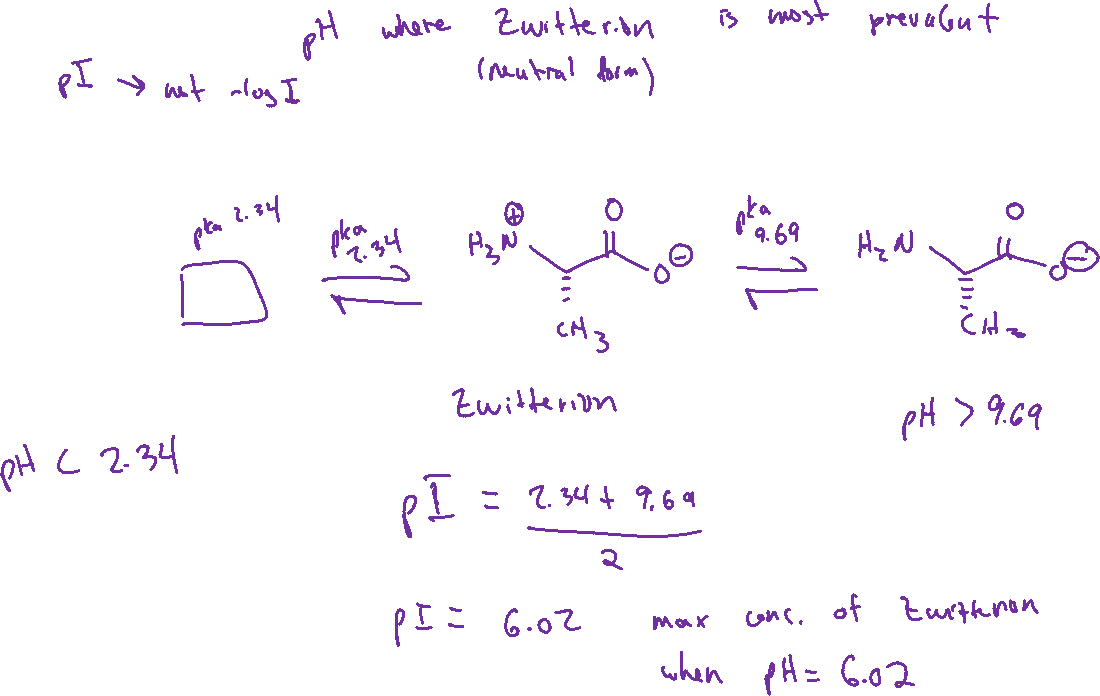 pH where Zwitterion is most prevalent
(neutral form)
pI → not -log I
pka 2.34
pka 2.34
H3N ⊕ O O ⊖
CH3
pka 9.69
H2N O O ⊖
CH3
Zwitterion
pH > 9.69
pH < 2.34
pI = 2.34 + 9.69
2
pI = 6.02 max conc. of Zwitterion
when pH = 6.02